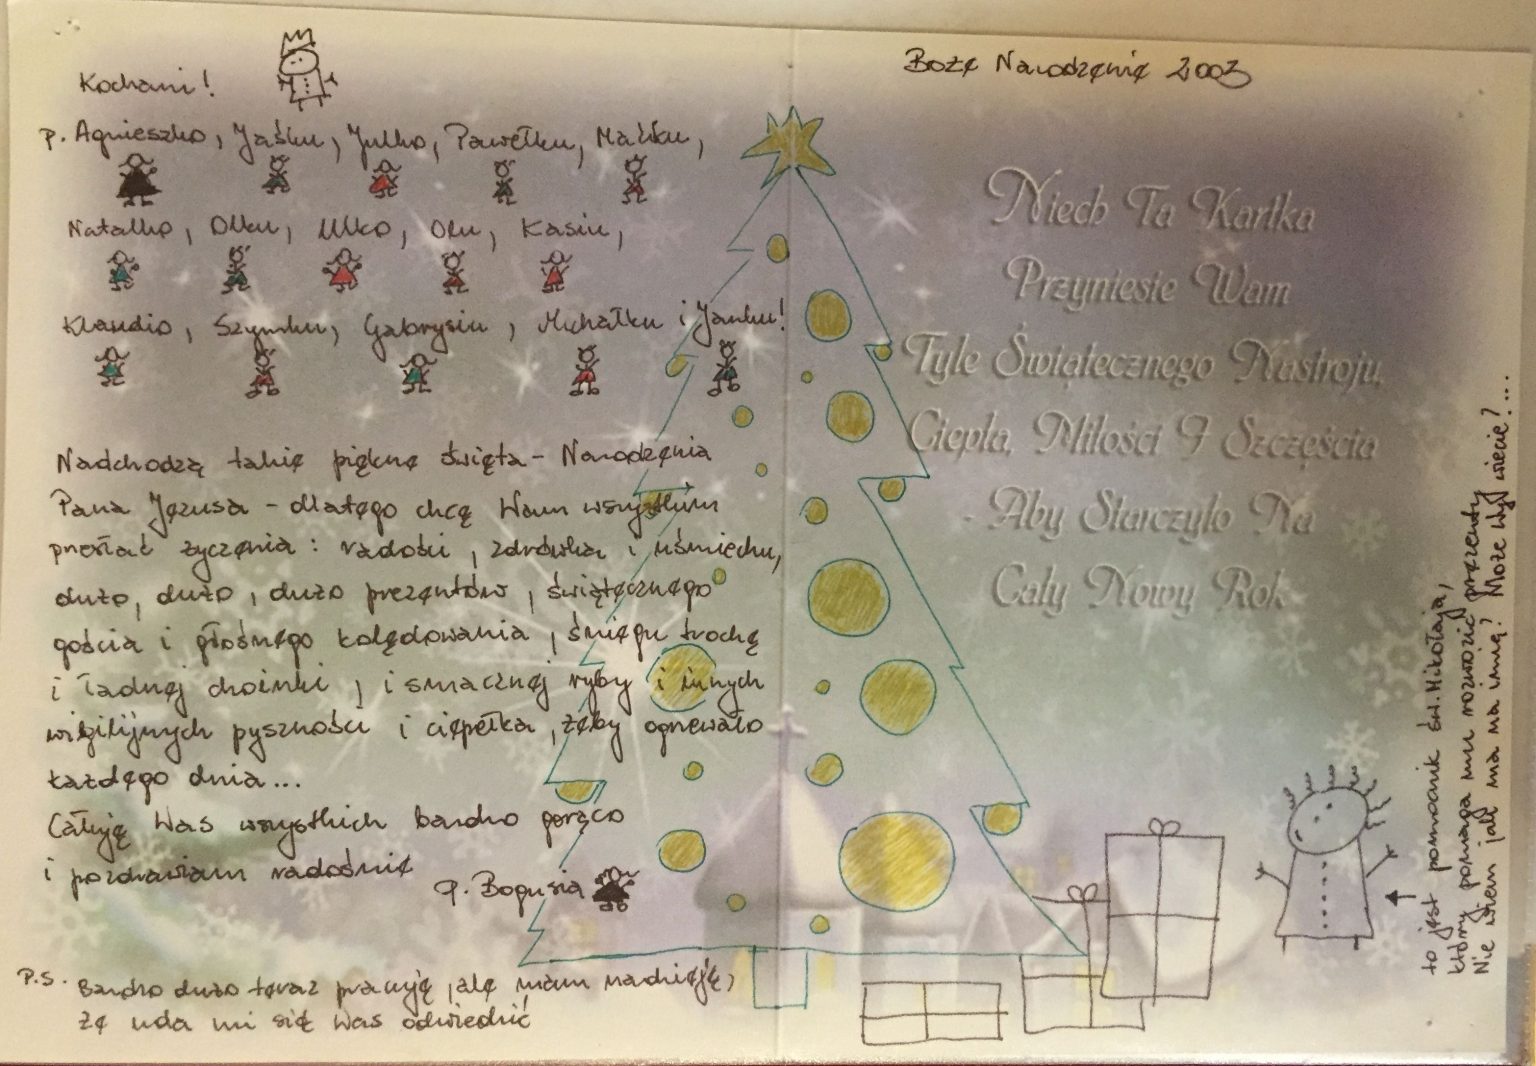 Kochani!
p. Agnieszko, Jaśku, Julko, Pawełku, Maćku,
Natalko, Olku, Ulko, Olu, Kasiu,
Klaudio, Szymku, Gabrysiu, Michałku i Janku!
Nadchodzą takie piękne święta - Narodzenia
Pana Jezusa - dlatego chcę Wam wszystkim
przesłać życzenia: radości, zdrówka i uśmiechu,
dużo, dużo, dużo prezentów, świątecznego
gościa i głośnego kolędowania, śniegu trochę
i ładnej choinki, i smacznej ryby i innych
wigilijnych pyszności i ciepełka, żeby ogrzewało
każdego dnia...
Całuję Was wszystkich bardzo gorąco
i pozdrawiam radośnie
q. Bogusia
P.S. Bardzo dużo teraz pracuję, ale mam nadzieję,
że uda mi się Was odwiedzić
Boże Narodzenie 2003
Niech Ta Kartka
Przyniesie Wam
Tyle Świątecznego Nastroju,
Ciepła, Miłości I Szczęścia
- Aby Starczyło Na
Cały Nowy Rok
to jest pomocnik św. Mikołaja,
który pomaga mu rozwozić prezenty
Nie wiem jak ma na imię? Może Wy wiecie?...